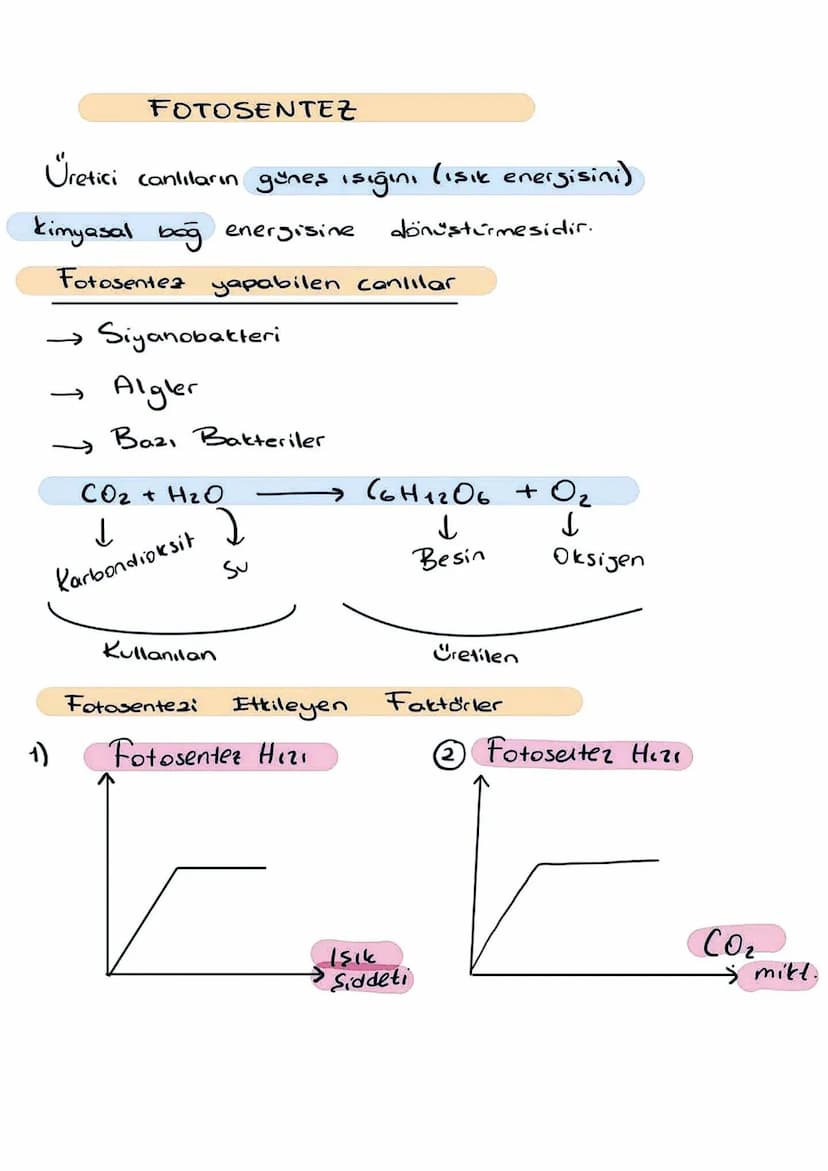 FOTOSENTEZ
Üretici canlıların güneş ışığını (ışık enerjisini)
kimyasal bağ enerjisine dönüştürmesidir.
Fotosentez yapabilen canlılar
→ Siyanobakteri
→ Algler
→ Bazı Bakteriler
CO2 + H2O → C6H12O6 + O2
Karbondioksit Su Besin Oksijen
Kullanılan Üretilen
Fotosentezi Etkileyen Faktörler
1) Fotosentez Hızı
Işık
Şiddeti
2 Fotosetez Hızı
CO2
mikt.